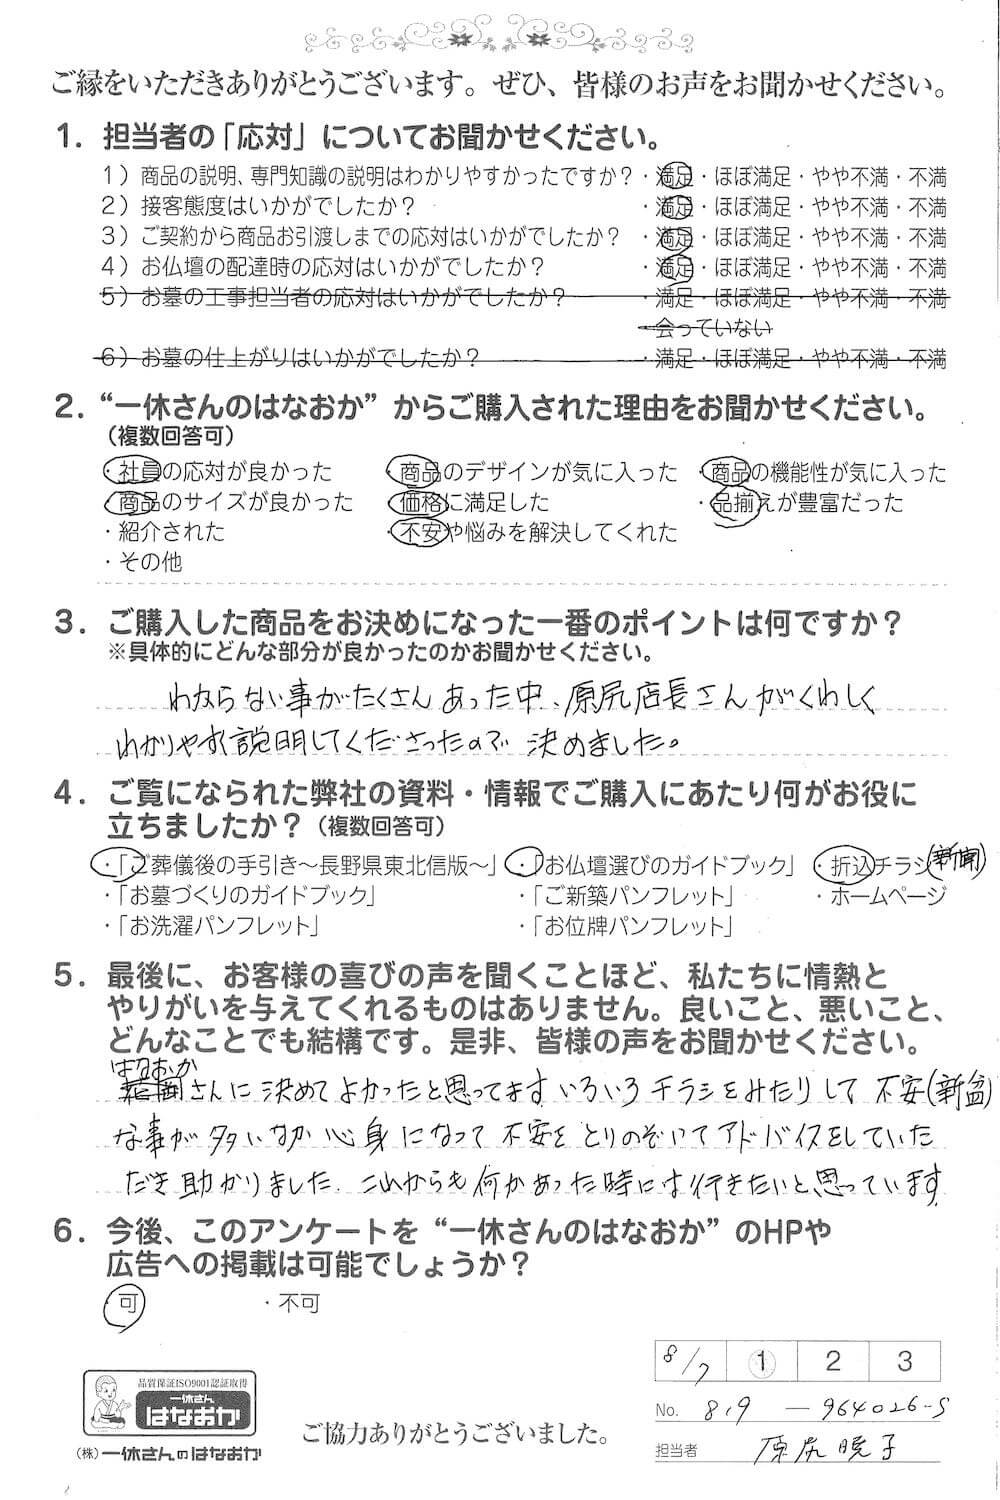 ご縁をいただきありがとうございます。ぜひ、皆様のお声をお聞かせください。
1. 担当者の「応対」についてお聞かせください。
1）商品の説明、専門知識の説明はわかりやすかったですか？・満足・ほぼ満足・やや不満・不満
2）接客態度はいかがでしたか？ ・満足・ほぼ満足・やや不満・不満
3）ご契約から商品お引渡しまでの応対はいかがでしたか？ ・満足・ほぼ満足・やや不満・不満
4）お仏壇の配達時の応対はいかがでしたか？ ・満足・ほぼ満足・やや不満・不満
5）お墓の工事担当者の応対はいかがでしたか？ ・満足・ほぼ満足・やや不満・不満
・会っていない
6）お墓の仕上がりはいかがでしたか？ ・満足・ほぼ満足・やや不満・不満
2. “一休さんのはなおか”からご購入された理由をお聞かせください。
（複数回答可）
・社員の応対が良かった ・商品のデザインが気に入った ・商品の機能性が気に入った
・商品のサイズが良かった ・価格に満足した ・品揃えが豊富だった
・紹介された ・不安や悩みを解決してくれた
・その他
3. ご購入した商品をお決めになった一番のポイントは何ですか？
※具体的にどんな部分が良かったのかお聞かせください。
わからない事がたくさんあった中、原尻店長さんがくわしく
わかりやすく説明してくださったので決めました。
4. ご覧になられた弊社の資料・情報でご購入にあたり何がお役に
立ちましたか？（複数回答可）
・「ご葬儀後の手引き～長野県東北信版～」 ・「お仏壇選びのガイドブック」 ・折込チラシ（新聞）
・「お墓づくりのガイドブック」 ・「ご新築パンフレット」 ・ホームページ
・「お洗濯パンフレット」 ・「お位牌パンフレット」
5. 最後に、お客様の喜びの声を聞くことほど、私たちに情熱と
やりがいを与えてくれるものはありません。良いこと、悪いこと、
どんなことでも結構です。是非、皆様の声をお聞かせください。
はなおか
さんに決めてよかったと思ってます いろいろチラシをみたりして不安（新盆）
な事が多いなか心身になって不安をとりのぞいてアドバイスをしていた
だき助かりました。これからも何かあった時には行きたいと思っています
6. 今後、このアンケートを“一休さんのはなおか”のHPや
広告への掲載は可能でしょうか？
・可 ・不可
8/7 1 2 3
品質保証ISO9001認証取得
一休さん
はなおか
（株）一休さんのはなおか
ご協力ありがとうございました。
No. 819 — 964026-5
担当者 原尻 暁子